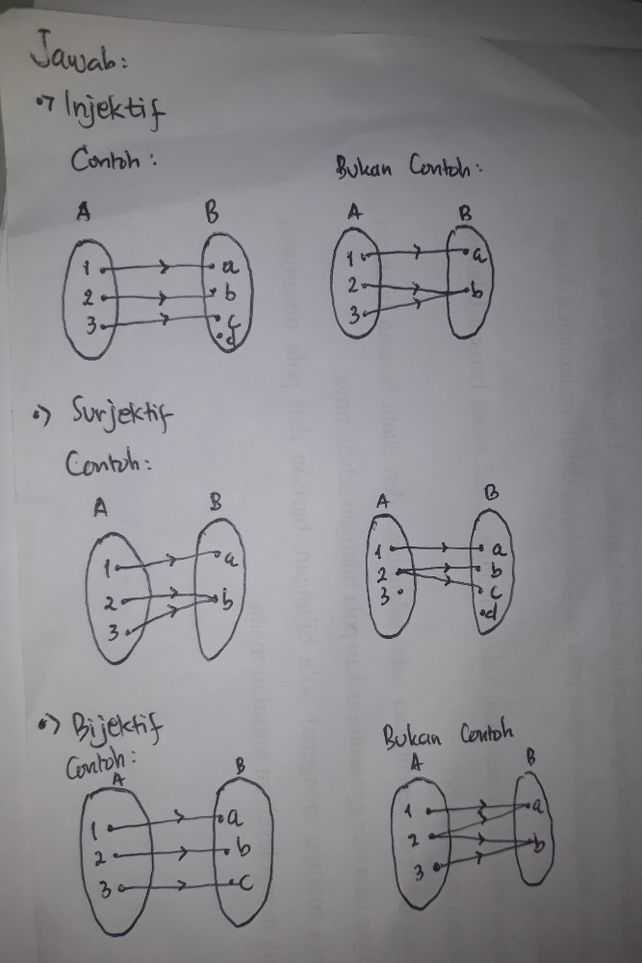 Jawab:
•> Injektif
Contoh :
Bukan Contoh :
A B
1 a
2 b
3 c
d
A B
1 a
2 b
3
•> Surjektif
Contoh :
A B
1 a
2 b
3
A B
1 a
2 b
3 c
d
•> Bijektif
Contoh :
Bukan Contoh
A B
1 a
2 b
3 c
A B
1 a
2 b
3